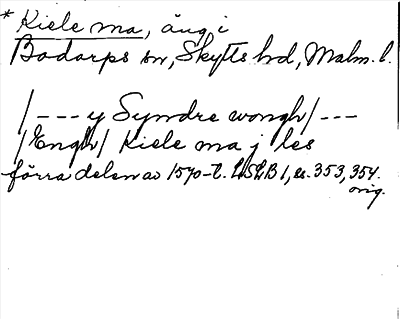 * Kiele ma, äng i
Bodarps sn, Skytts hd, Malm. l.
/ - - - y Syndre wongh / - - -
/ Engh / Kiele ma j les
förra delen av 1570-t. LSLB 1, ss. 353, 354.
orig.